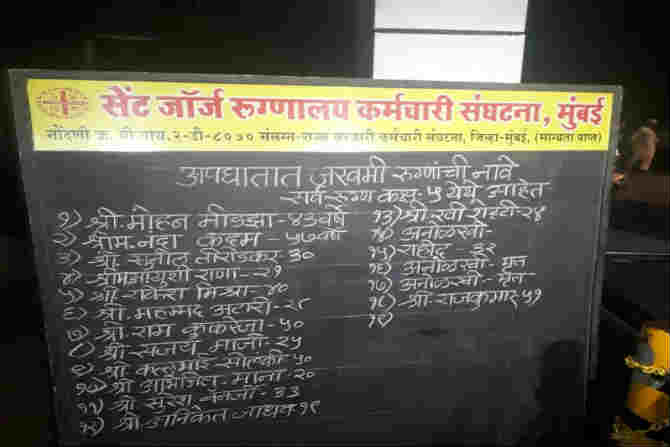 सेंट जॉर्ज रूग्णालय कर्मचारी संघटना, मुंबई
नोंदणी क्र. बी.वाय.२-डी-८०३० संलग्न-राज्य सरकारी कर्मचारी संघटना, जिल्हा-मुंबई, (मान्यता प्राप्त)
अपघातात जखमी रुग्णांची नावे
सर्व रुग्ण कक्ष-५ येथे आहेत
१) श्री. मोहन मोडझा-४३वर्षे
२) श्रीम. नंदा कदम - ५७वर्षे
३) श्री सुनील तिरोडकर-३०
४) श्रीम आयुशी राणा-२१
५) श्री राकेश मिश्रा-४०
६) श्री. महम्मद अलरी-२८
७) श्री राम कुकरेजा-५०
८) श्री संजय माजी-२५
९) श्री कलुभाई सोलंकी ५०
१०) श्री अभिजित माना २०
११) श्री सुरेश बॅनर्जी-३३
१२) श्री. अनिकेत जाधव १९
१३) श्री. रवी शेट्टी-२४
१४) अनोळखी-
१५) राहीद- ३२
१६) अनोळखी- मृत
१७) अनोळखी- मृत
१८) श्री-राजकुमार ५१
१९)